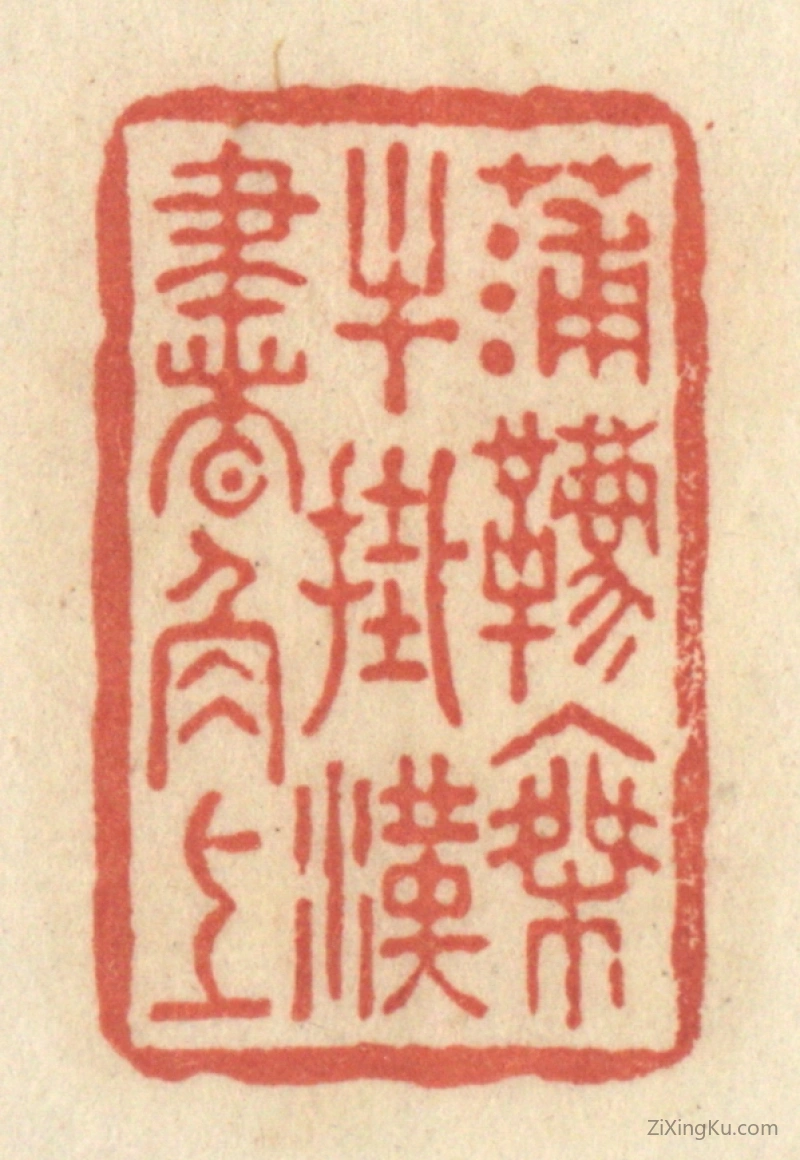 蒲鞯乘
牛掛漢
書角上
ZiXingKu.com